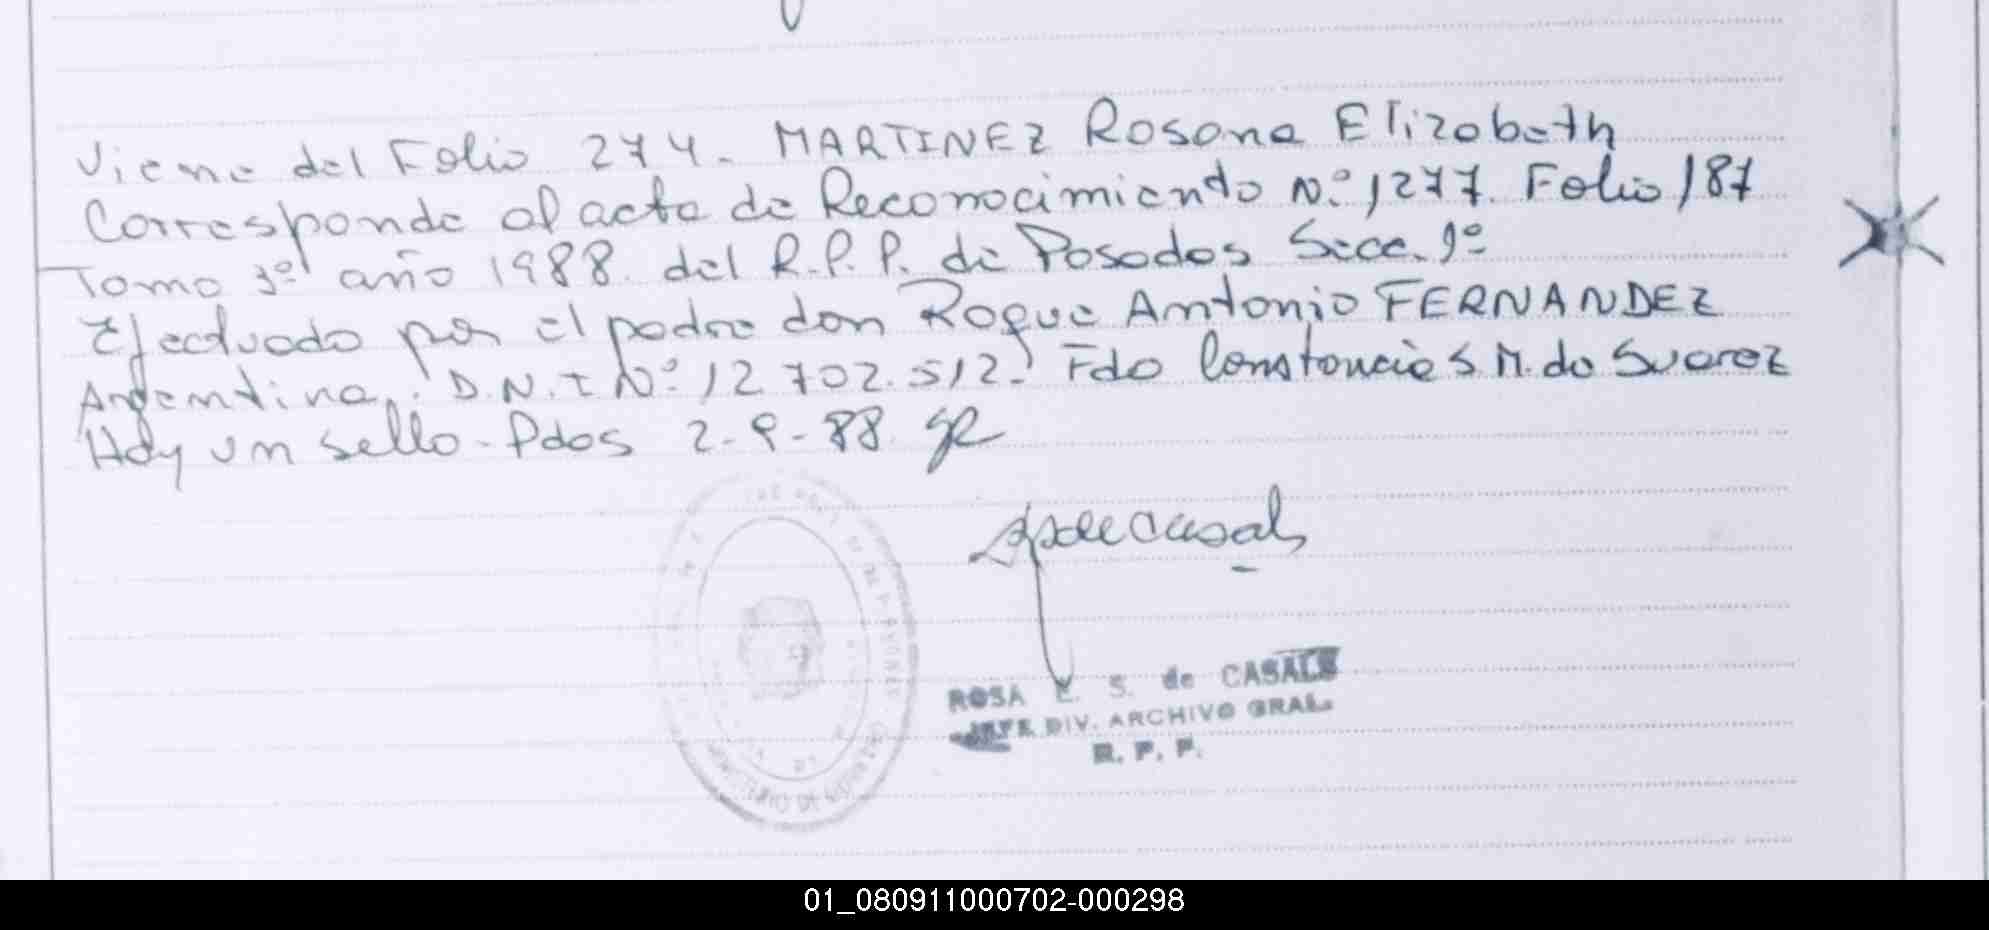 Viene del Folio 274. MARTINEZ Rosana Elizabeth
Corresponde al acta de Reconocimiento N.º 1277. Folio 187
Tomo 3º año 1988. del R.P.P. de Posadas Secc. 1º
Efectuado por el padre don Roque Antonio FERNANDEZ
Argentino. D.N.I Nº 12.702.512. Fdo Constancia S M. de Suarez
Hay un sello - Pdas 2-9-88
de Casals
ROSA E. S. de CASALS
JEFE DIV. ARCHIVO GRAL.
R. P. P.
01_080911000702-000298